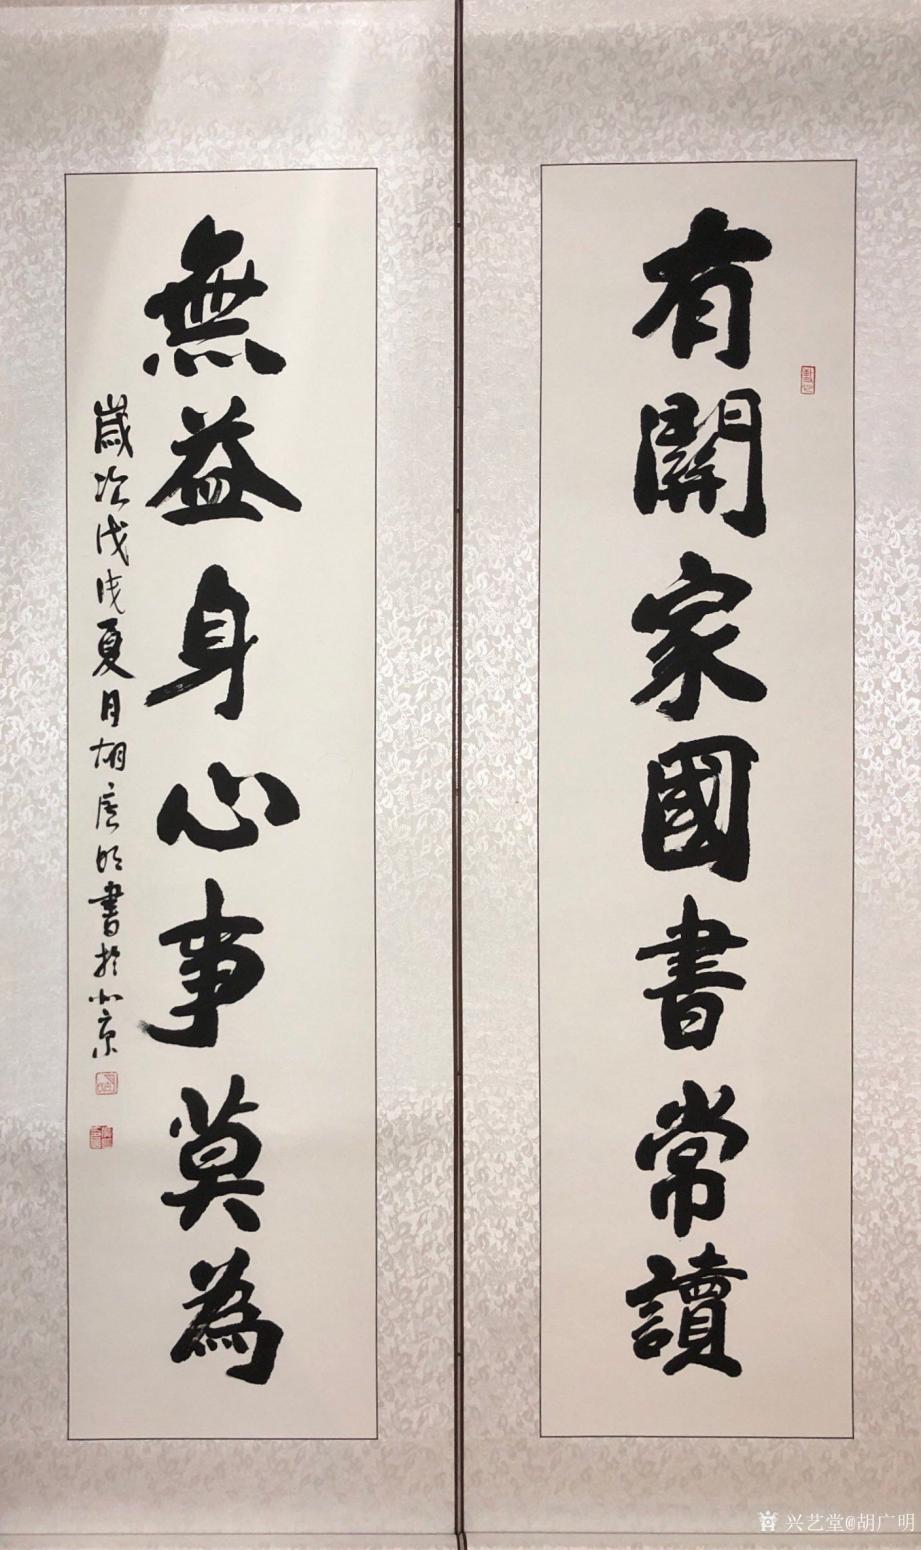 有關家國書常讀
無益身心事莫為
歲次戊戌夏月胡廣明書於北京
兴艺堂@胡广明